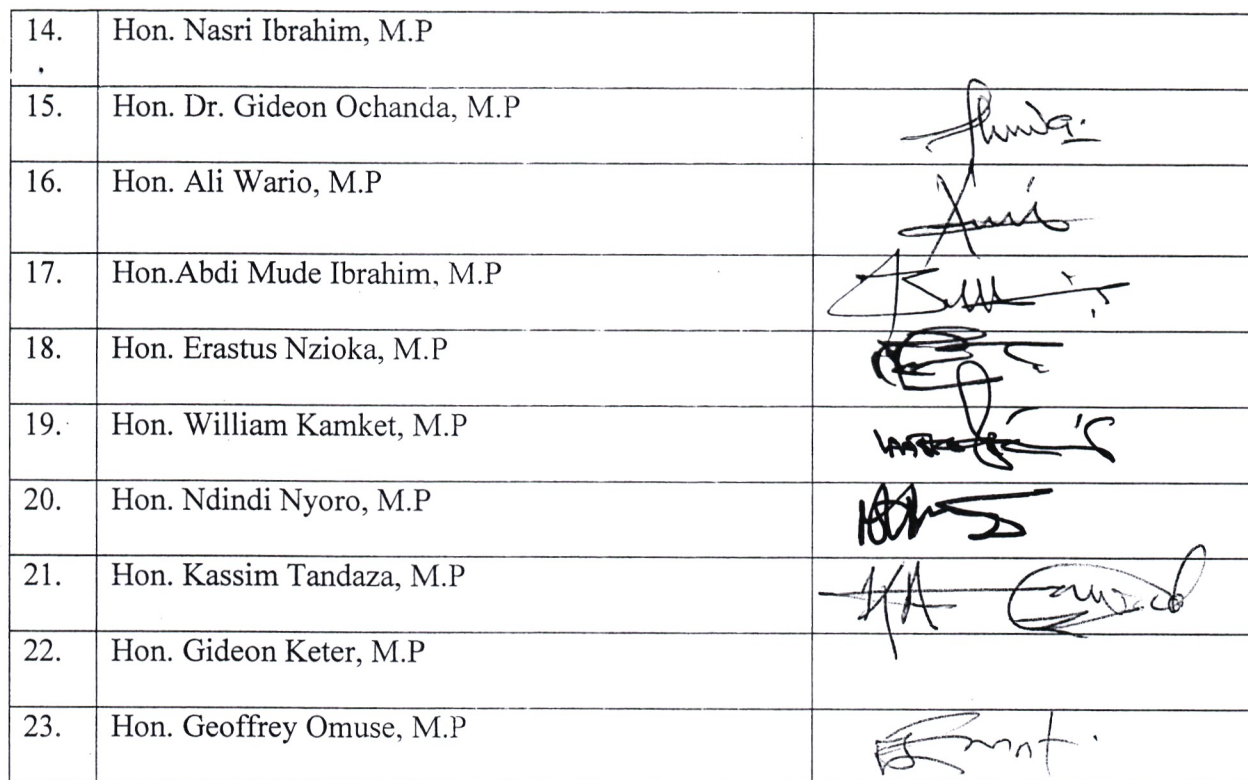 14. Hon. Nasri Ibrahim, M.P
15. Hon. Dr. Gideon Ochanda, M.P
16. Hon. Ali Wario, M.P
17. Hon.Abdi Mude Ibrahim, M.P
18. Hon. Erastus Nzioka, M.P
19. Hon. William Kamket, M.P
20. Hon. Ndindi Nyoro, M.P
21. Hon. Kassim Tandaza, M.P
22. Hon. Gideon Keter, M.P
23. Hon. Geoffrey Omuse, M.P